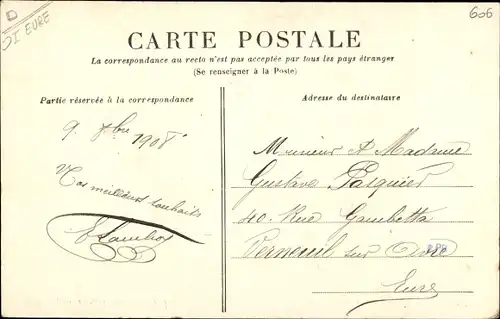 DI EURE
606
CARTE POSTALE
La correspondance au recto n'est pas acceptée par tous les pays étranger
(Se renseigner à la Poste)
Partie réservée à la correspondance
Adresse du destinataire
9. 8bre 1908.
Vos meilleurs souhaits
Monsieur & Madame
Gustave Pasquier
40. Rue Gambetta
Verneuil sur Avre
Eure